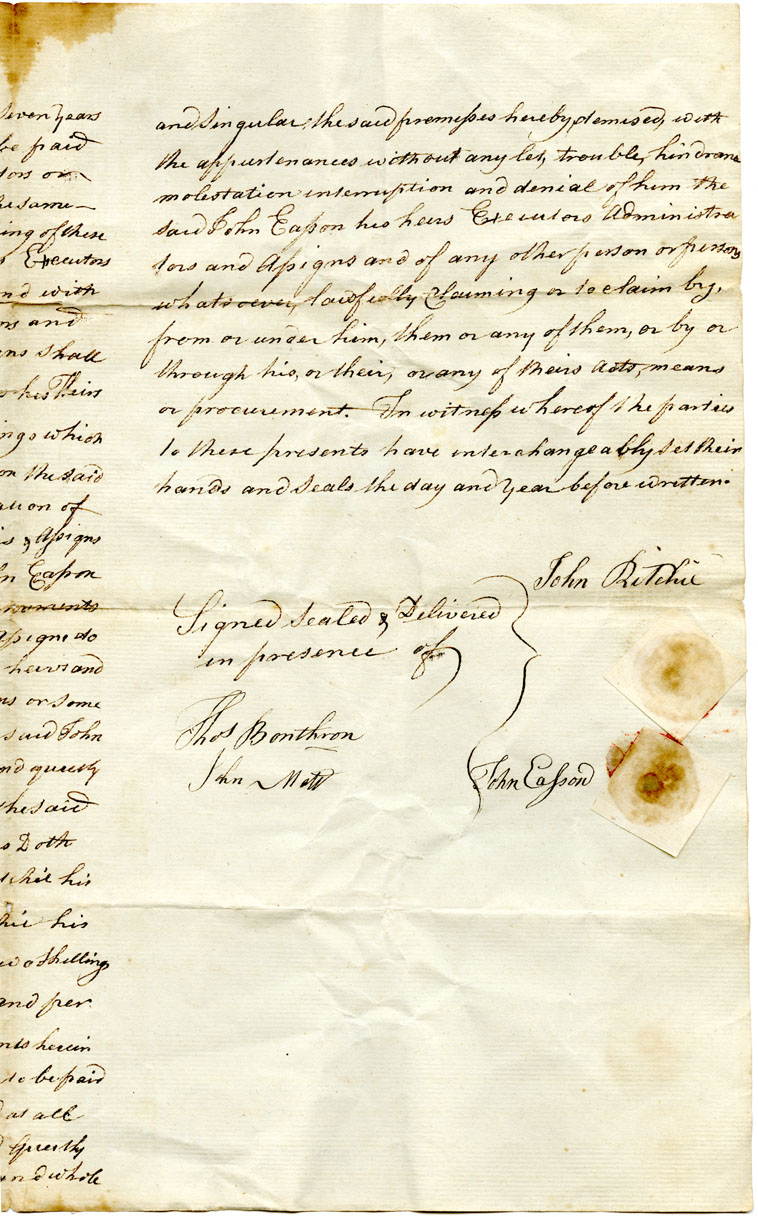 seven years
be paid
tors or
the same
ing of these
s Executors
and with
ors and
ens shall
o his Heirs
ings which
on the said
ation of
is & Assigns
hn Easson
Assigns do
heirs and
ns or some
said John
nd quietly
the said
s Doth
tchie his
hie his
two shillings
and per
nts herein
to be paid
d as all
d Quietly
and whole
and Singular the said premisses hereby demised, with
the appurtenances without any let, trouble, hindrance
molestation interruption and denial of him the
said John Easson his heirs Executors Administra
tors and Assigns and of any other person or persons
whatsoever, lawfully Claiming or to claim by,
from or under him, them or any of them, or by or
through his, or their, or any of theirs Acts, means
or procurement. In witness whereof the parties
to these presents have interchangeably set their
hands and seals the day and year before written.
John Ritchie
Signed sealed & Delivered
in presence of
Thos Bonthron
John Easson